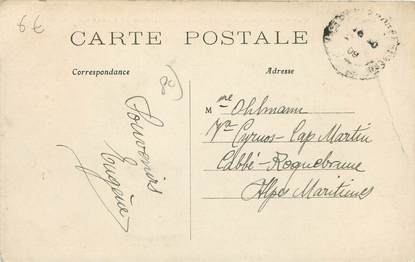 6€
CARTE POSTALE
Correspondance
Adresse
80
Souvenirs
Eugène
Mme Ohlmann
Va Cyrnos - Cap Martin
Cabbé - Roquebrune
Alpes Maritimes
09